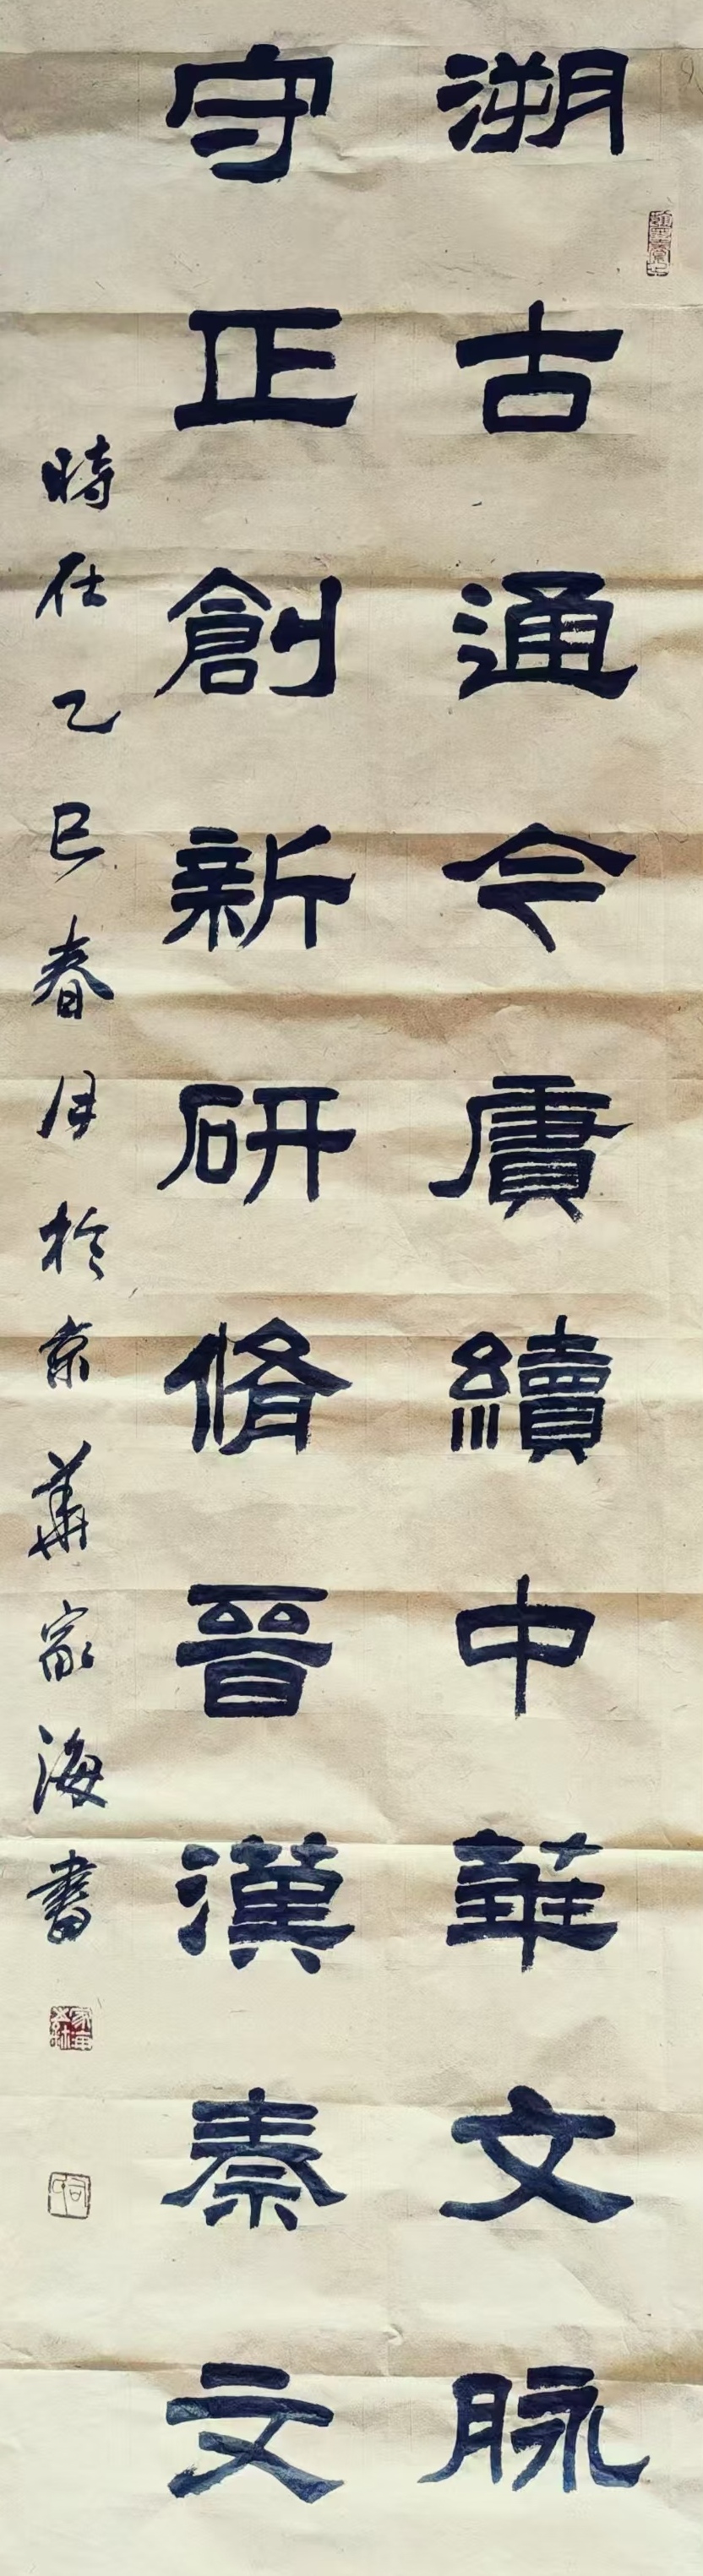 溯古通今賡續中華文脉
守正創新研脩晉漢秦文
時在乙巳春月於京華家海書